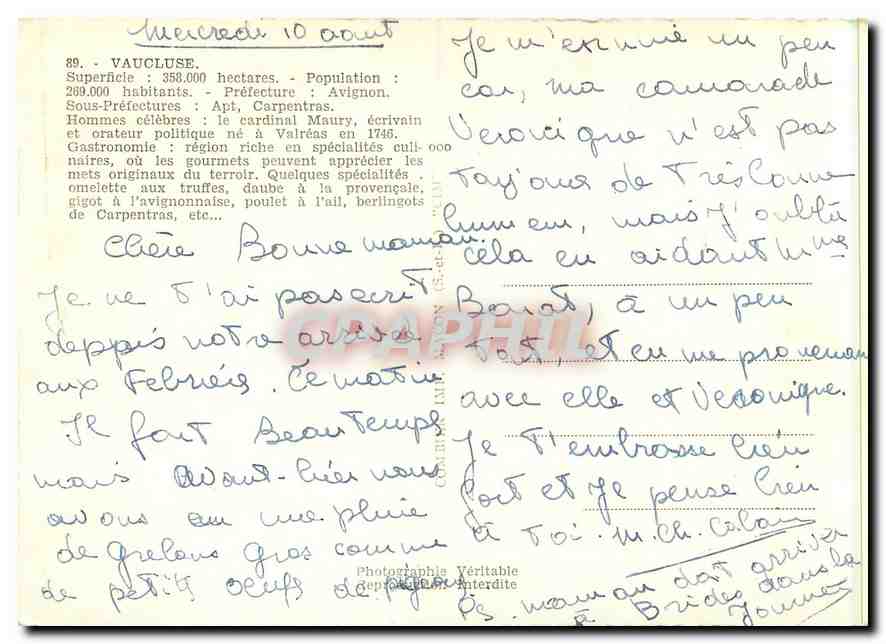 Mercredi 10 aout
89. - VAUCLUSE.
Superficie : 358.000 hectares. - Population :
269.000 habitants. - Préfecture : Avignon.
Sous-Préfectures : Apt, Carpentras.
Hommes célèbres : le cardinal Maury, écrivain
et orateur politique né à Valréas en 1746.
Gastronomie : région riche en spécialités culi-
naires, où les gourmets peuvent apprécier les
mets originaux du terroir. Quelques spécialités .
omelette aux truffes, daube à la provençale,
gigot à l'avignonnaise, poulet à l'ail, berlingots
de Carpentras, etc...
Chère Bonne maman.
Je ne t'ai pas ecrit
deppis notre arrivé
aux Febriés. Ce matin
Il fait Beau Temps
mais avant-hier nous
avons eu une pluie
de grelons gros comme
de petits oeufs de pigeons
Je m'ennuie un peu
car, ma camarade
Veronique n'est pas
toujours de Très bonne
humeur, mais J'oublie
cela en aidant Mme
Bonat, à un peu
tout, et en me promenan
avec elle et Veronique.
Je t'embrasse bien
fort et Je pense bien
à toi. M. Ch.
Ps. maman doit arriver
à Brides dans la
Journée
COMBIER IMP. MACON (S.-et-L.) "CIM"
Photographie Véritable
Reproduction Interdite
CPAPHIL